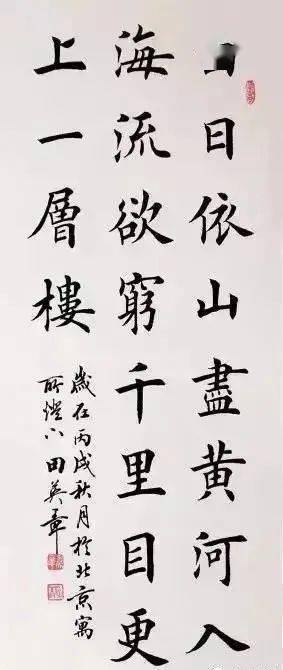 日依山盡黄河入
海流欲窮千里目更
上一層樓
歲在丙戌秋月於北京寓
所燈下田英章